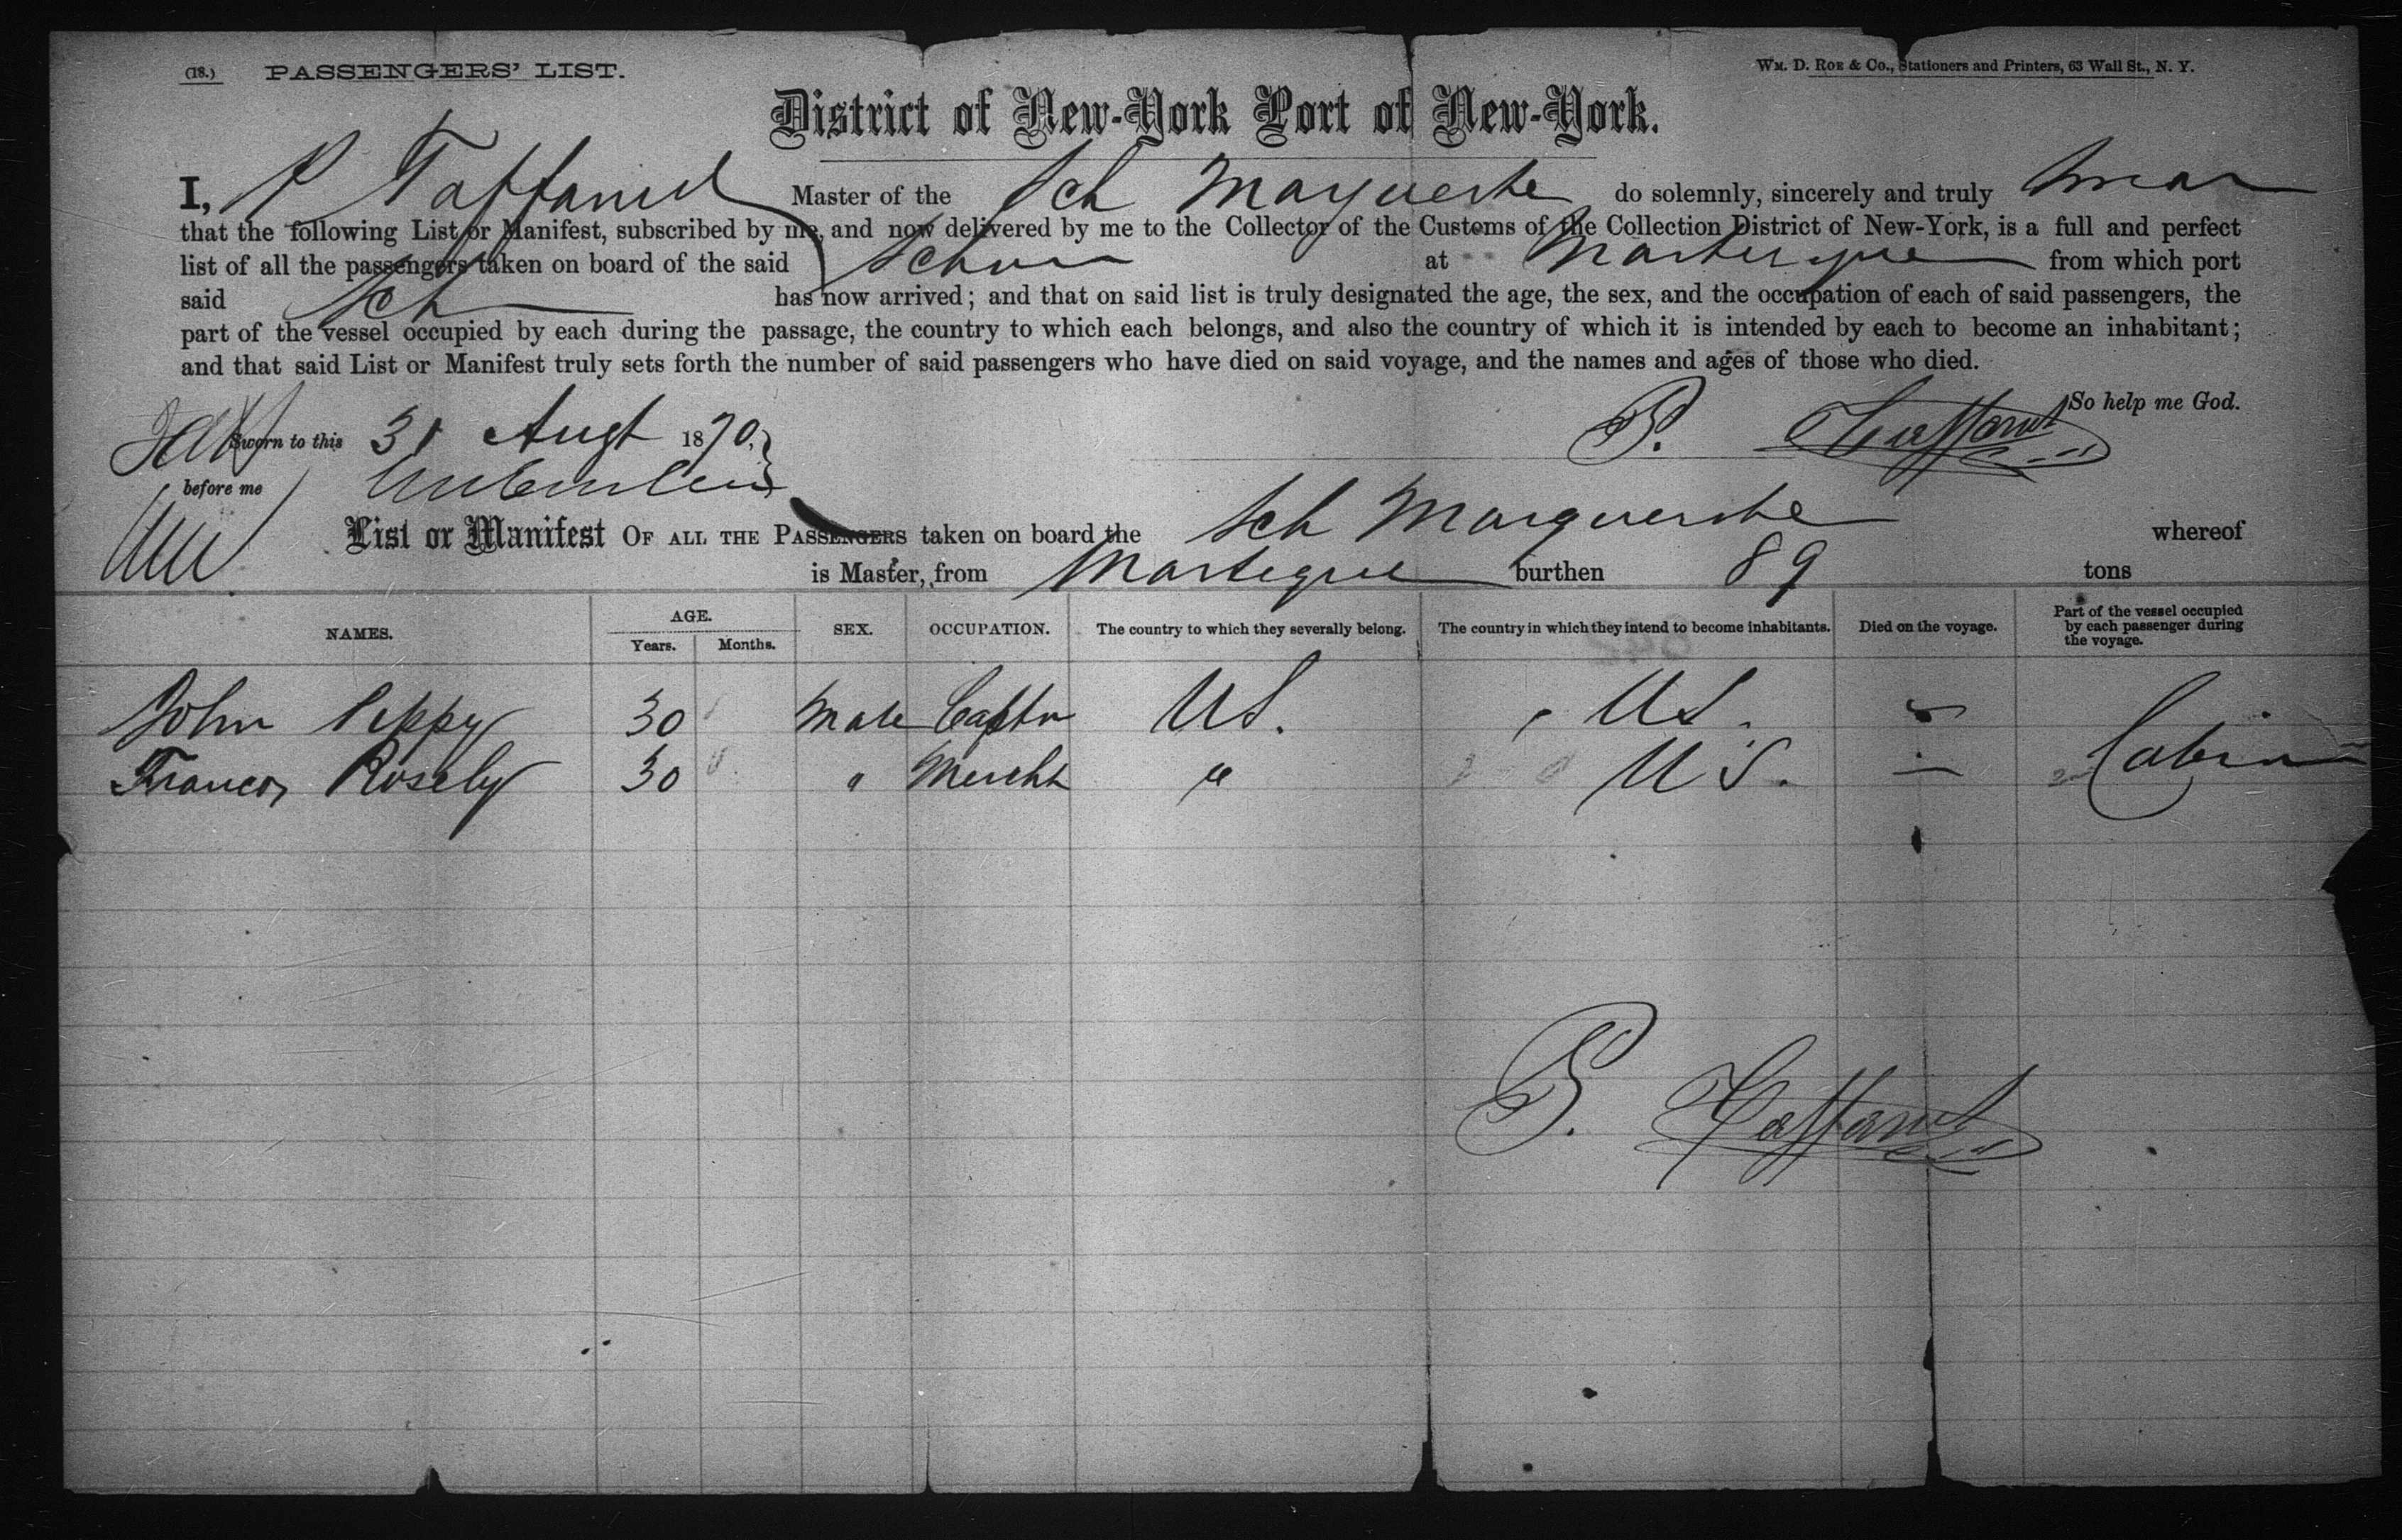 (18.) PASSENGERS' LIST.
WM. D. ROE & CO., Stationers and Printers, 63 Wall St., N. Y.
District of New-York Port of New-York.
I, P Taffanel Master of the Sch Marguerite do solemnly, sincerely and truly swear
that the following List or Manifest, subscribed by me, and now delivered by me to the Collector of the Customs of the Collection District of New-York, is a full and perfect
list of all the passengers taken on board of the said Schnr at Marteique from which port
said Sch has now arrived; and that on said list is truly designated the age, the sex, and the occupation of each of said passengers, the
part of the vessel occupied by each during the passage, the country to which each belongs, and also the country of which it is intended by each to become an inhabitant;
and that said List or Manifest truly sets forth the number of said passengers who have died on said voyage, and the names and ages of those who died.
So help me God.
Sworn to this 31 Augt 1870.
P. Taffanel
before me
List or Manifest OF ALL THE PASSENGERS taken on board the Sch Marguerite whereof
is Master, from Marteique burthen 89 tons
NAMES. AGE. Years. Months. SEX. OCCUPATION. The country to which they severally belong. The country in which they intend to become inhabitants. Died on the voyage. Part of the vessel occupied by each passenger during the voyage.
John Peppy 30 Male Captn US. US. —
Francois Rosely 30 " Mercht " US. — Cabin
P. Taffanel